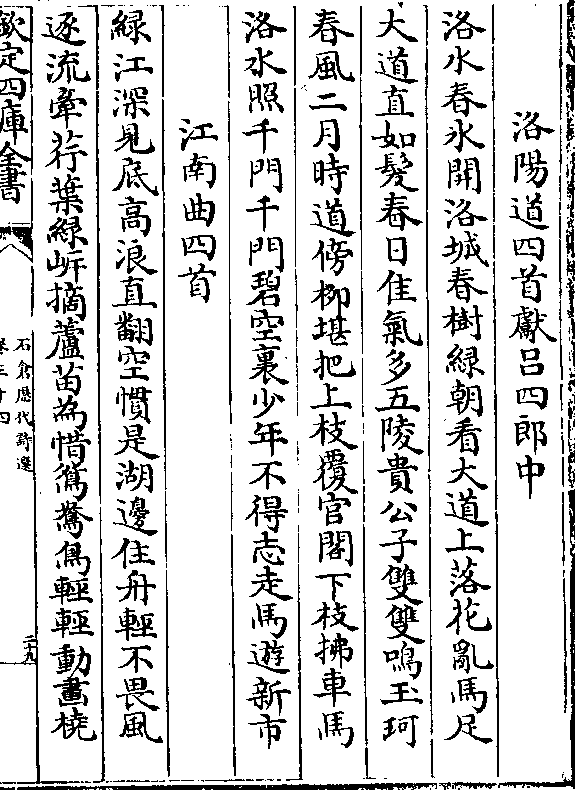 洛陽道四首獻吕四郎中
洛水春氷開洛城春樹緑朝看大道上落花亂馬足
大道直如髮春日佳氣多五陵貴公子雙雙鳴玉珂
春風二月時道傍柳堪把上枝覆官閣下枝拂車馬
洛水照千門千門碧空裏少年不得志走馬遊新市
江南曲四首
緑江深見底高浪直翻空慣是湖邊住舟輕不畏風
逐流牽荇葉緑㟁摘蘆苗為惜鴛鴦鳥輕輕動畫橈
欽定四庫全書
石倉歴代詩選
卷三十四
二十九